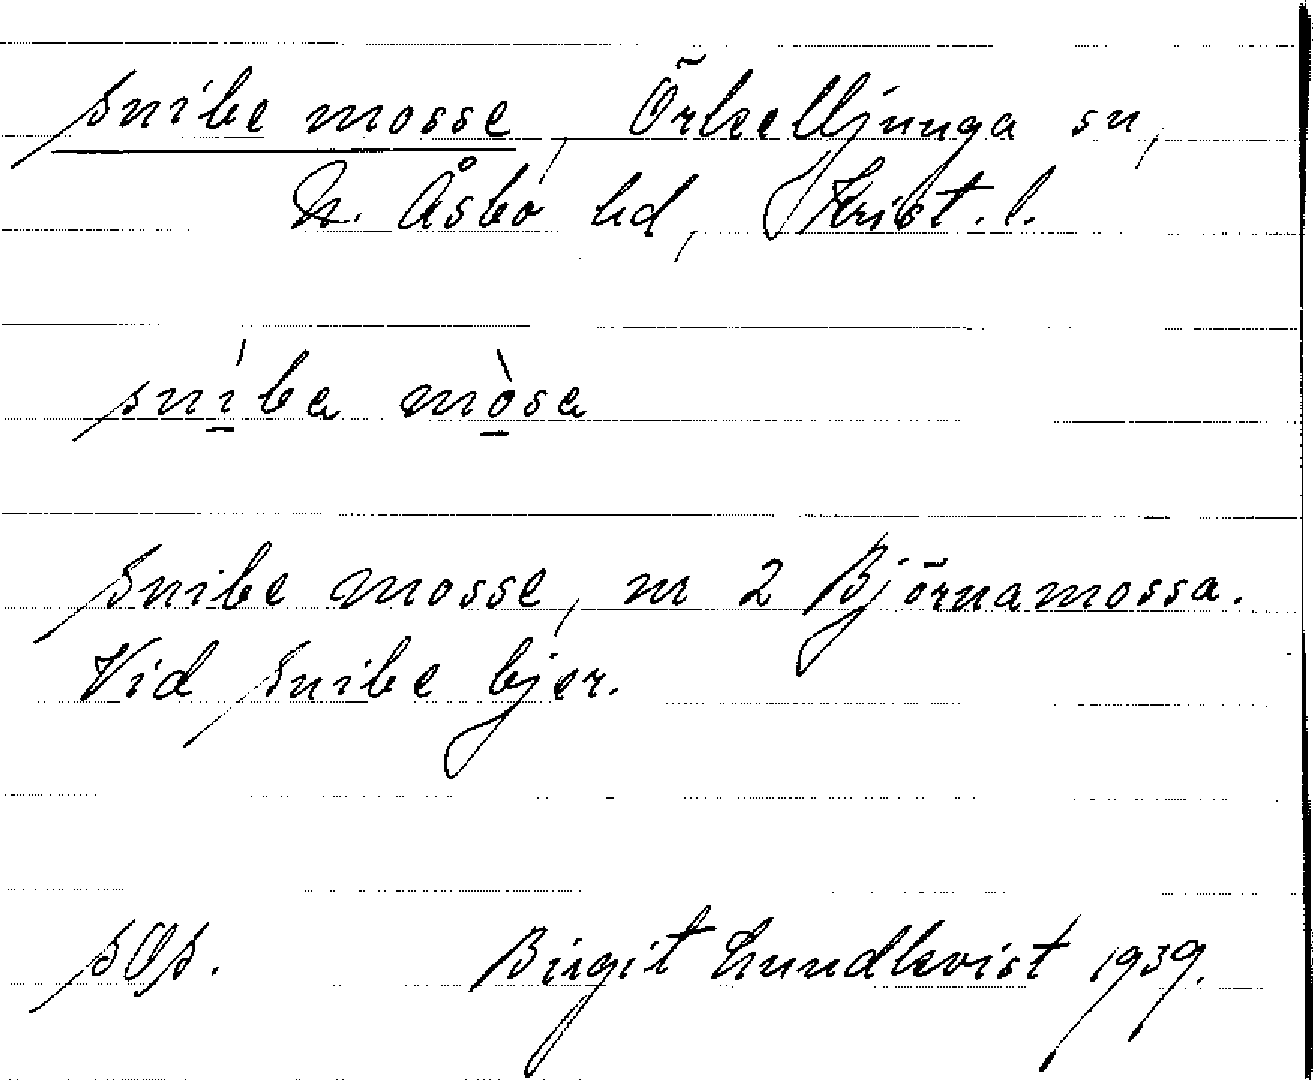 Snibe mosse, Örkelljunga sn,
N. Åsbo hd, Krist. l.
sníba mòsa
Snibe mosse, nr 2 Björnamossa.
Vid Snibe bjer.
Birgit Lundkvist 1939.